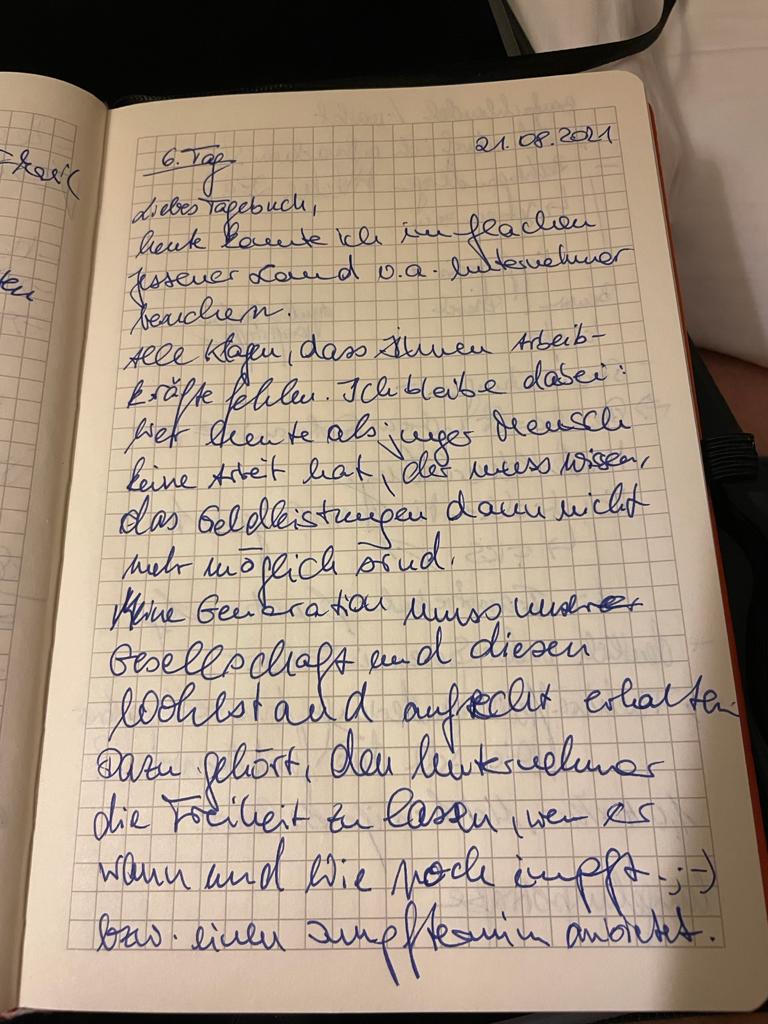 6. Tag 21.08.2021
Liebes Tagebuch,
heute konnte ich im flachen
Jessener Land v.a. Unternehmer
besuchen.
Alle klagen, dass Ihnen Arbeib-
kräfte fehlen. Ich bleibe dabei:
Wer heute als junger Mensch
keine Arbeit hat, der muss wissen,
das Geldleistungen dann nicht
mehr möglich sind.
Meine Generation muss unsere
Gesellschaft und diesen
Wohlstand aufrecht erhalten
Dazu gehört, den Unternehmer
die Freiheit zu lassen, wen er
wann und wie noch impft. ;-)
bzw. einen Impftermin anbietet.